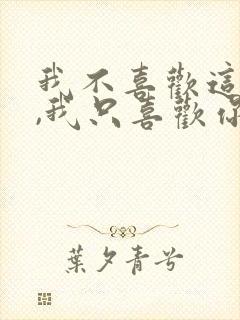 我不喜歡這
,我只喜歡你
葉夕青兮